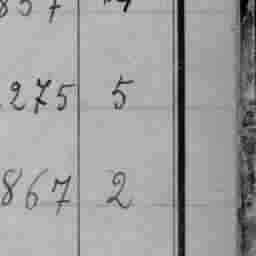 275 5
867 2